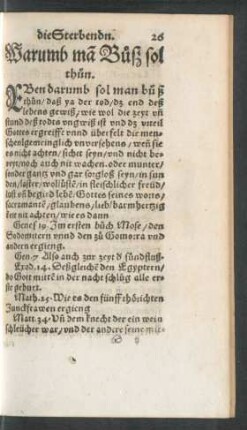 die Sterbendn. 26
Warumb mā Büß sol
thůn.
EBen darumb sol man büß
thůn/ daß ya der tod/ dz end deß
lebens gewiß/ wie wol die zeyt vñ
stund deß todts vngwiß ist vnd dz vrteil
Gottes ergreifft vnnd überfelt die men-
schen gemeinglich vnversehens/ weñ sie
es nicht achten/ sicher seyn/ vnd nicht be-
ten/ noch auch nit wachen. oder munter/
sonder gantz vnd gar sorgloß seyn/ in sun
den/ laster/ wollüstē/ in fleischlicher freud/
vnd lebē Gottes seines worts/
sacramentē/ glaubens/ lieb/ barmhertzig
keit nit achten/ wie es dann
Genes. 19. Im ersten bůch Mose/ den
Sodomitern vnnd den zů Gomorra vnd
andern ergieng.
Gen. 7. Also auch zur zeyt d' sündfluß-
Exod. 14. Deßgleichē den Egyptern/
do Gott mittē in der nacht schlůg alle er-
ste geburt.
Math. 25. Wie es den fünff thörichten
Junckfrawen ergieng
Matt. 24. Vñ dem knecht der ein wein
schleücher war/ vnd der andere seine mit-